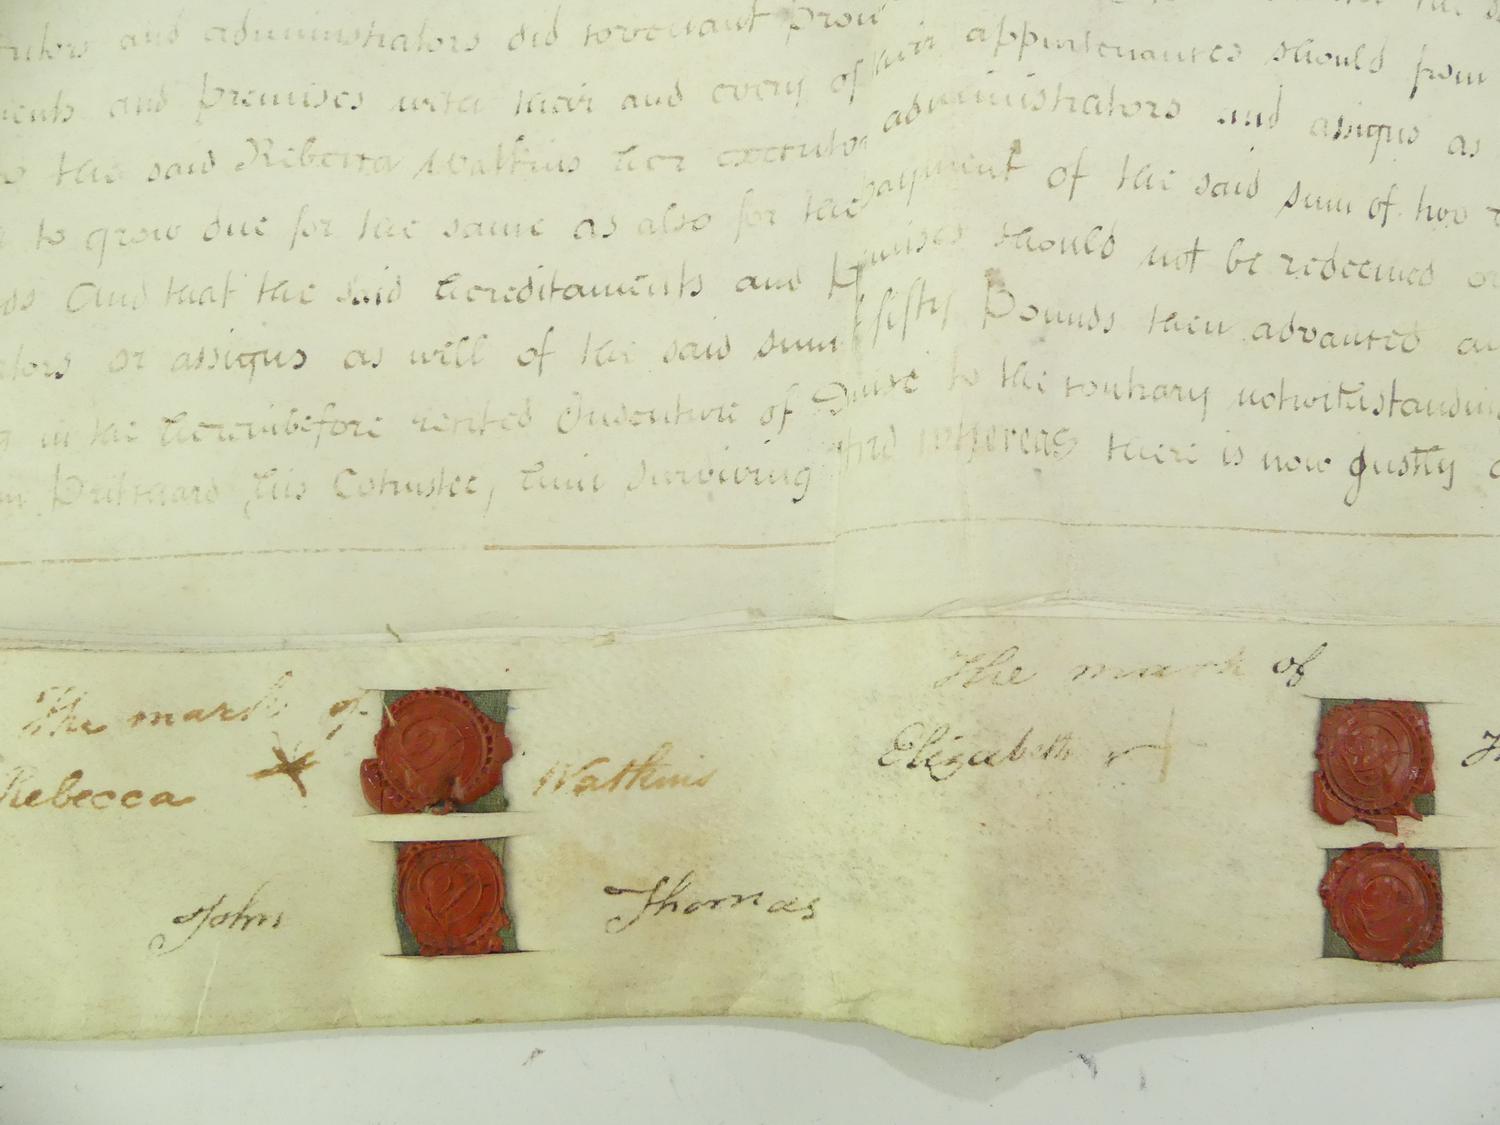 and administrators did covenant
appurtenances should from
and premises with their and every of their administrators and assigns as
the said Rebecca Watkins her executors payment of the said sum of two
to grow due for the same as also for the premises should not be redeemed or
And that the said hereditaments and
or assigns as well of the said sum fifty Pounds then advanced
in the hereinbefore recited Indenture of Demise to the contrary notwithstanding
Pritchard his Cotrustee, him surviving And whereas there is now justly
The mark of
Rebecca Watkins
John Thomas
The mark of
Elizabeth